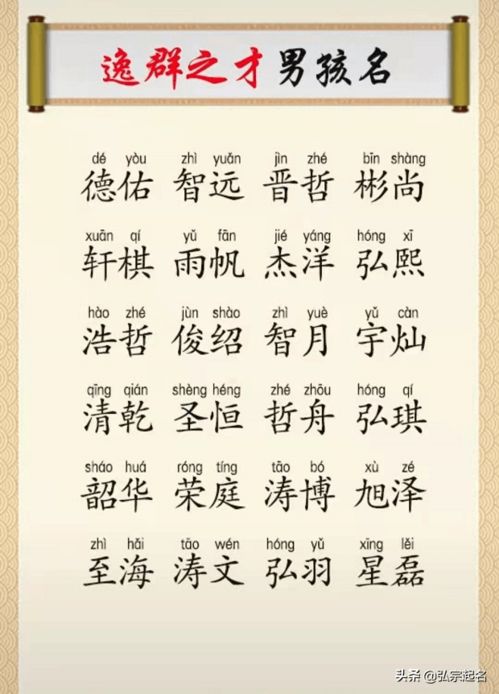 逸群之才男孩名
dé yòu zhì yuǎn jìn zhé bīn shàng
德佑 智远 晋哲 彬尚
xuān qí yǔ fān jié yáng hóng xī
轩棋 雨帆 杰洋 弘熙
hào zhé jùn shào zhì yuè yǔ càn
浩哲 俊绍 智月 宇灿
qīng qián shèng héng zhé zhōu hóng qí
清乾 圣恒 哲舟 弘琪
sháo huá róng tíng tāo bó xù zé
韶华 荣庭 涛博 旭泽
zhì hǎi tāo wén hóng yǔ xīng lěi
至海 涛文 弘羽 星磊
头条 @弘宗起名